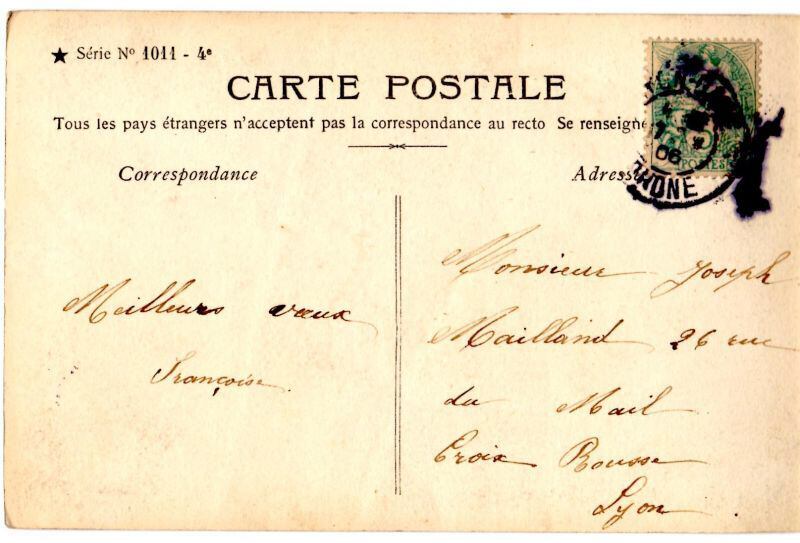 ★ Série Nº 1011 - 4e
CARTE POSTALE
Tous les pays étrangers n'acceptent pas la correspondance au recto Se renseigne
Correspondance
Adress
5
POSTES
06
RHONE
Meilleurs vœux
Françoise
Monsieur Joseph
Mailland 26 rue
du Mail
Croix Rousse
Lyon